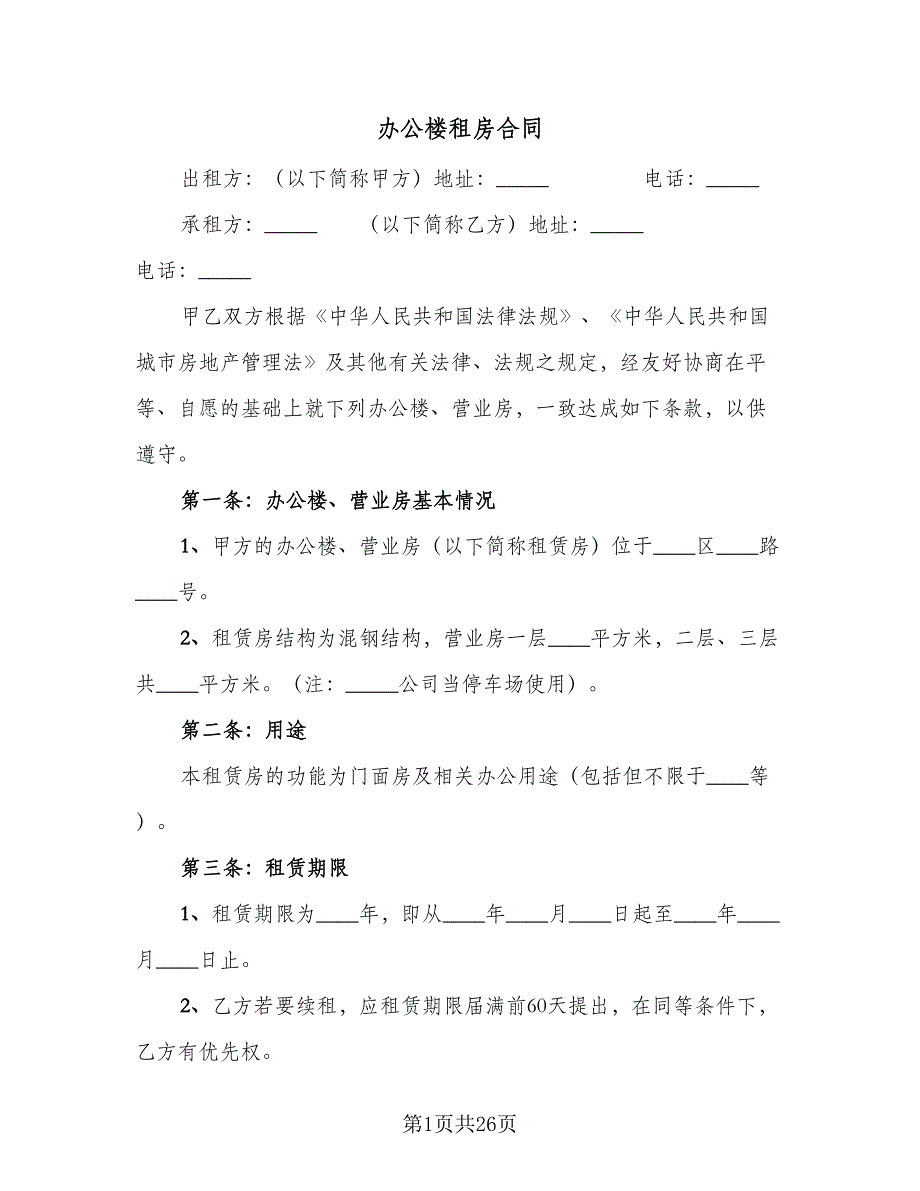 办公楼租房合同
出租方：（以下简称甲方）地址：_____ 电话：_____
承租方：_____ （以下简称乙方）地址：_____
电话：_____
甲乙双方根据《中华人民共和国法律法规》、《中华人民共和国
城市房地产管理法》及其他有关法律、法规之规定，经友好协商在平
等、自愿的基础上就下列办公楼、营业房，一致达成如下条款，以供
遵守。
第一条：办公楼、营业房基本情况
1、甲方的办公楼、营业房（以下简称租赁房）位于____区____路
____号。
2、租赁房结构为混钢结构，营业房一层____平方米，二层、三层
共____平方米。（注：_____公司当停车场使用）。
第二条：用途
本租赁房的功能为门面房及相关办公用途（包括但不限于____等
）。
第三条：租赁期限
1、租赁期限为____年，即从____年____月____日起至____年____
月____日止。
2、乙方若要续租，应租赁期限届满前60天提出，在同等条件下，
乙方有优先权。
第1页共26页